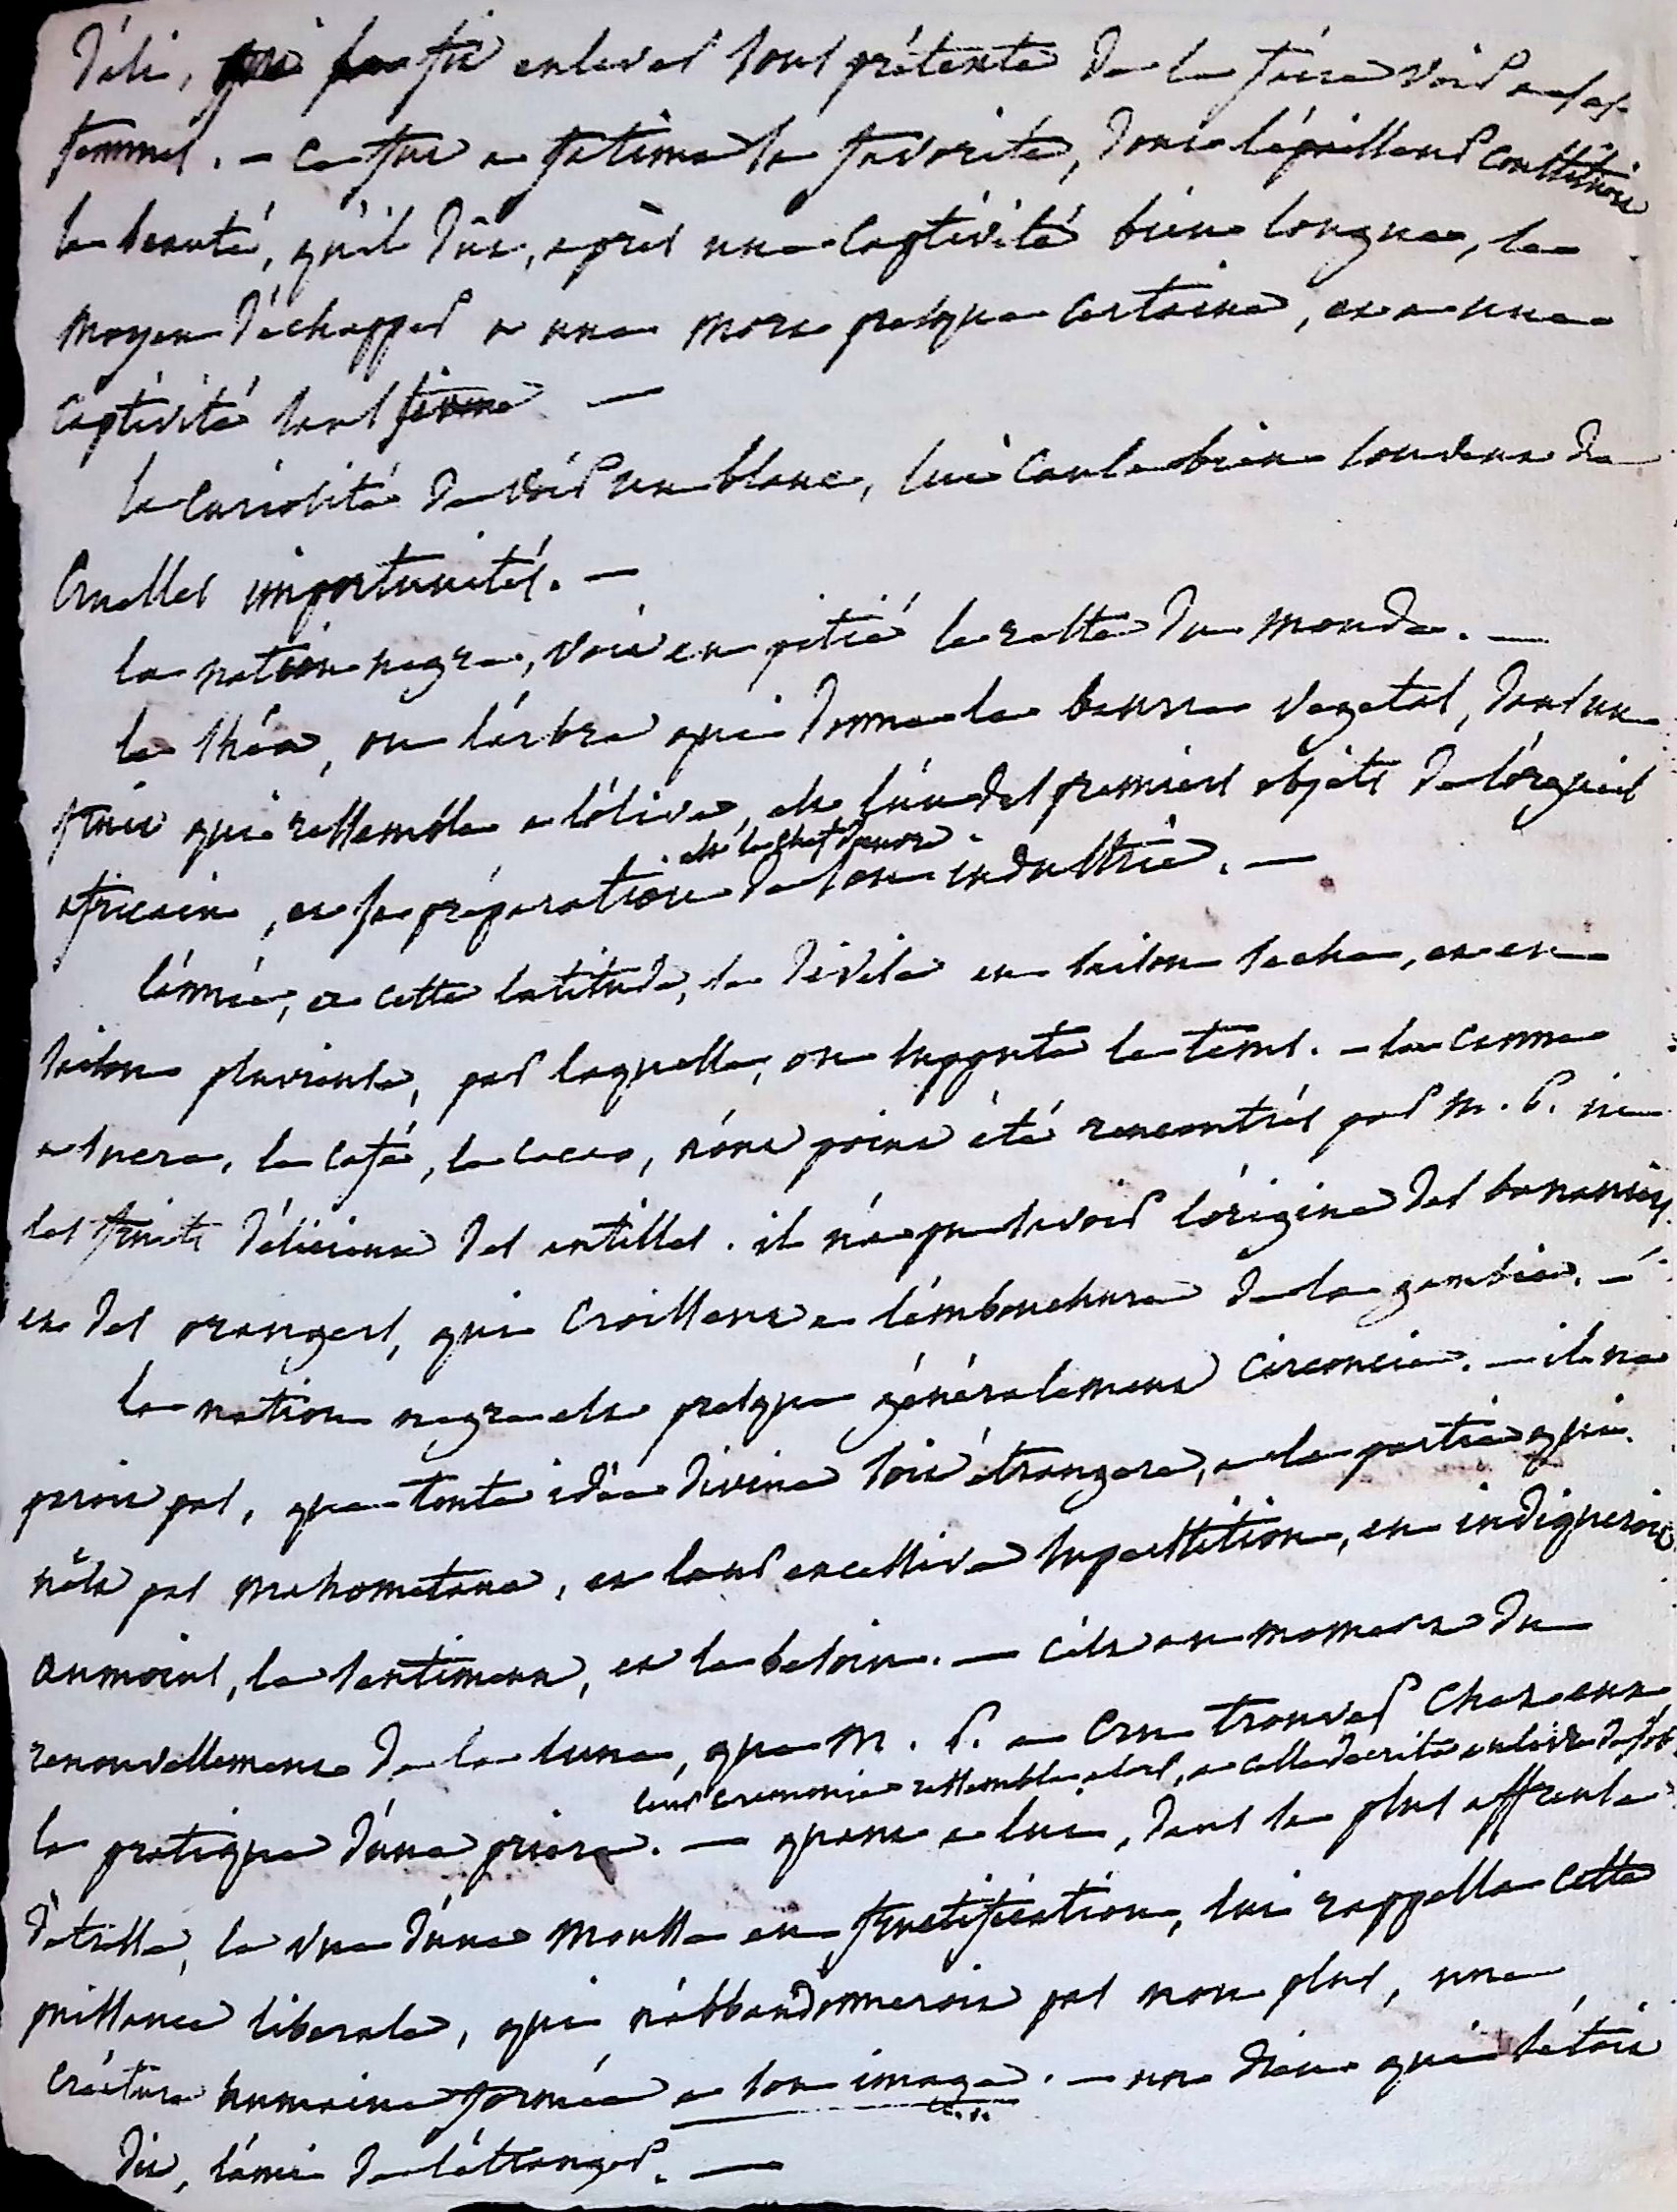 d'ali, qui le fit enlever sous prétexte de le faire voir a ses
femmes. — ce fut a fatima la favorite, dont l'épaisseur constituoit
la beauté, qu'il dût, après une captivité bien longue, le
moyen d'échapper a une mort presque certaine, et a une
captivité sans —
la curiosité de voir un blanc, lui causa bien souvent de
cruelles importunités. —
la nation negre, voit en pitié le reste du monde. —
le shéa, ou l'arbre qui donne le beurre vegetal, dans un
fruit qui ressemble a l'olive, est l'un des premiers objets de l'orgueil
est le chef d'œuvre
africain, et sa préparation de son industrie. —
l'année, a cette latitude, se divise en saison seche, et en
saison pluvieuse, par laquelle, on supporte le tems. — la canne
a sucre, le café, le cacao, n'ont point été rencontrés par m. P. ni
les fruits délicieux des antilles. il n'a pu savoir l'origine des bananiers
et des orangers, qui croissent a l'embouchure de la gambie. —
la nation negre est presque généralement circoncise. — il ne
paroit pas, que toute idée divine soit étrangere, a la partie qui
n'est pas mahometane, et leur excessive superstition, en indiqueroit
aumoins, le sentiment, et le besoin. — c'est au moment du
renouvellement de la lune, que m. P. a cru trouver chez eux
leur ceremonie ressemble alors, a celle decrite au livre de job
la pratique d'une priere. — quant a lui, dans la plus affreuse
détresse, la vue d'une mousse en fructification, lui rappella cette
puissance liberale, qui n'abbandonneroit pas non plus, une
créature humaine formée a son image. — un dieu qui s'étoit
dit, l'ami de l'étranger. —